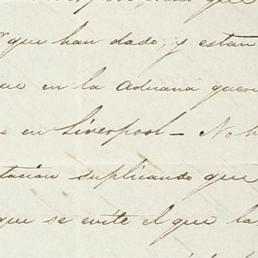 que han dado, y estan
que en la Aduana quer
en Liverpool — No h
tacion suplicando que
que se evite el que la